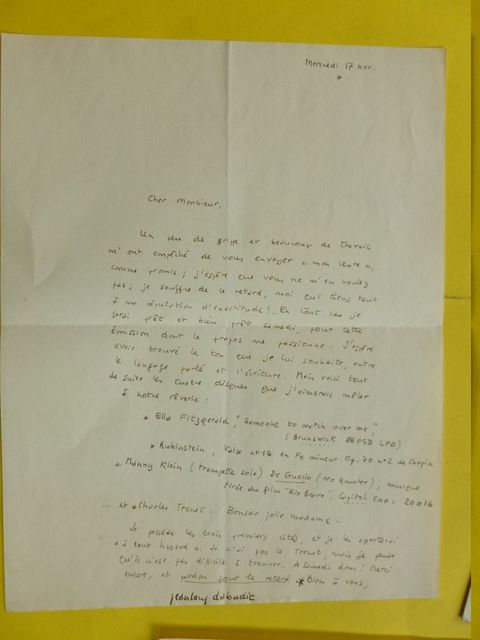 Mercredi 17 nov.
*
Cher Monsieur,
Un peu de grippe et beaucoup de travail
m'ont empêché de vous envoyer "mon texte",
comme promis ; j'espère que vous ne m'en voulez
pas ; je souffre de ce retard, moi qui tiens tant
à ma réputation d'exactitude !.. En tout cas je
serai prêt et bien prêt samedi, pour cette
émission dont le propos me passionne. J'espère
avoir trouvé le ton que je lui souhaite, entre
le langage parlé et l'écriture. Mais voici tout
de suite les quatre disques que j'aimerais mêler
à notre rêverie :
* Ella Fitzgerald, "Someone to watch over me",
(Brunswick 86053 LPB)
* Rubinstein, Valse en Fa mineur Op. 70 n°2 de Chopin
* Manny Klein (trompette solo) De Guello (no Quarter), musique
tirée du film "Rio Bravo". Capitol EAP 1 20016
... et * Charles Trenet : Bonsoir jolie madame..
Je possède les trois premiers cités, et je les apporterai
"à tout hasard". Je n'ai pas le Trenet, mais je pense
qu'il n'est pas difficile à trouver. A samedi donc ! Merci
encore, et pardon pour le retard * Bien à vous,
jean loup dabadie